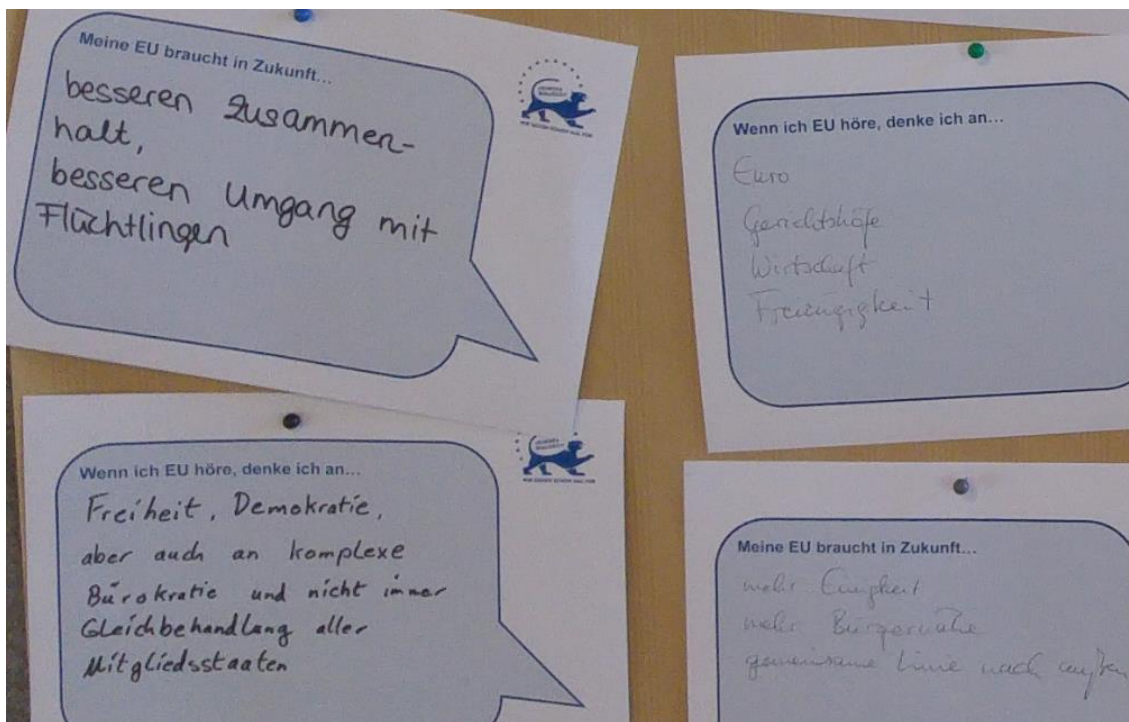 Meine EU braucht in Zukunft...
besseren Zusammen-
halt,
besseren Umgang mit
Flüchtlingen
Wenn ich EU höre, denke ich an...
Euro
Gerichtshöfe
Wirtschaft
Freizügigkeit
Wenn ich EU höre, denke ich an...
Freiheit, Demokratie,
aber auch an komplexe
Bürokratie und nicht immer
Gleichbehandlung aller
Mitgliedsstaaten
Meine EU braucht in Zukunft...
mehr Einigkeit
mehr Bürgernähe
gemeinsame Linie nach außen